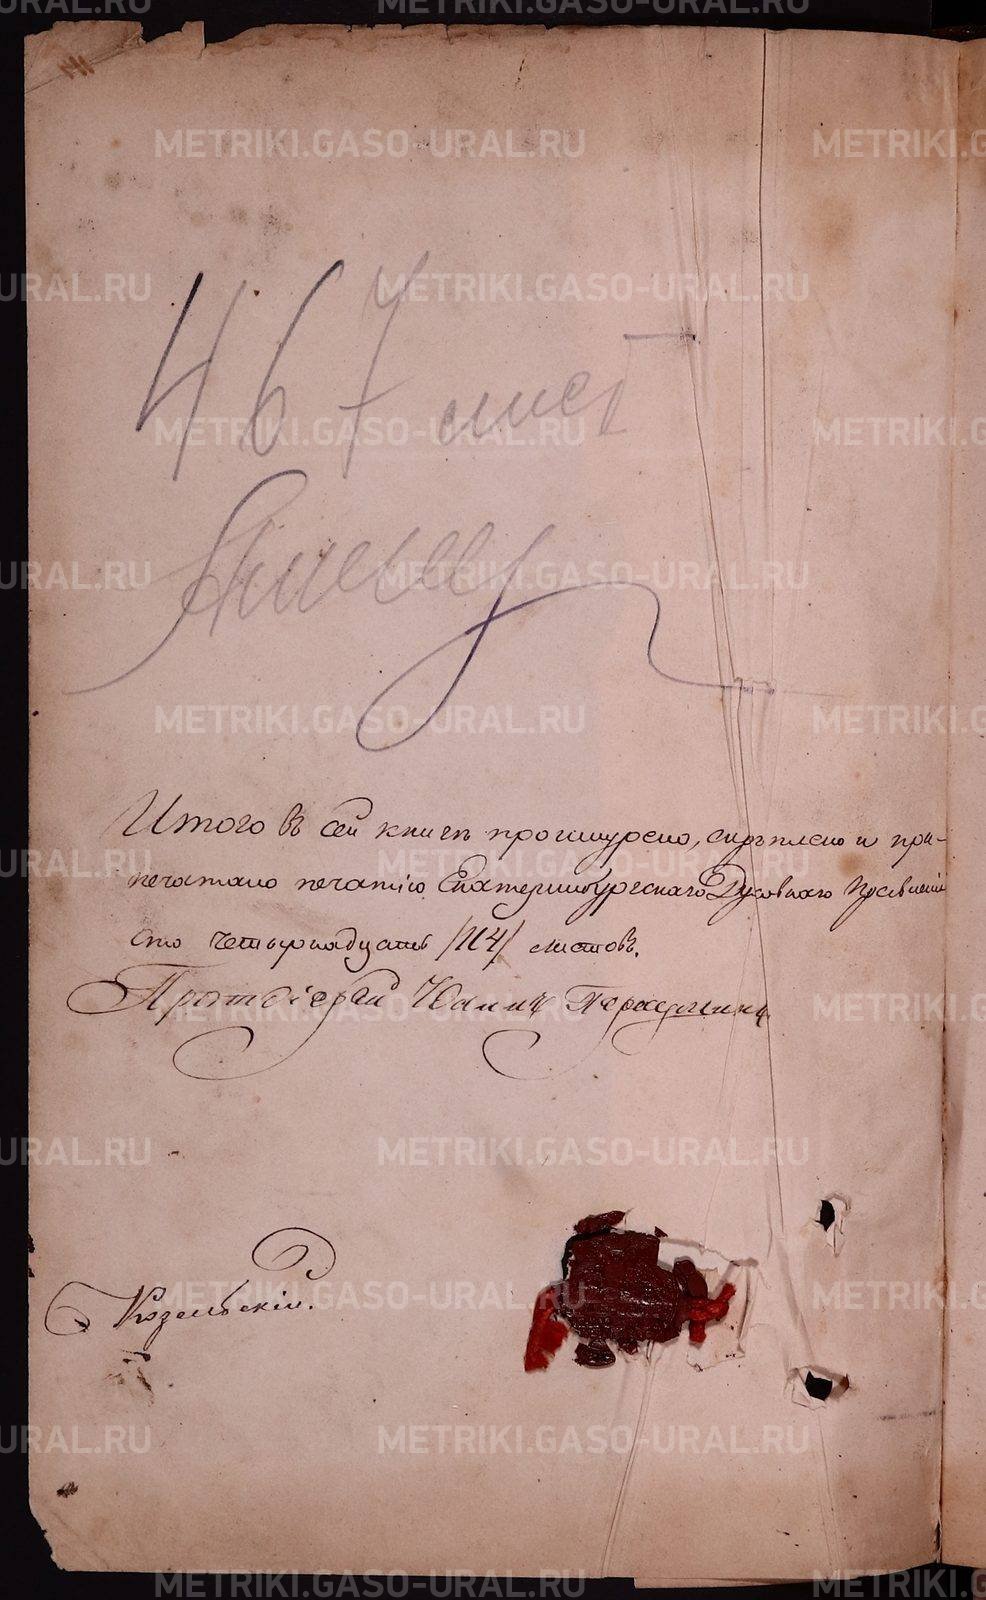 467 лист
Итого въ сей книгѣ прошнурено, скрѣплено и при-
печатано печатію Екатеринбургскаго Духовнаго Правленія
сто четырнадцать /114/ листовъ.
Протоіерей Іоаннъ
Козельскій.
METRIKI.GASO-URAL.RU